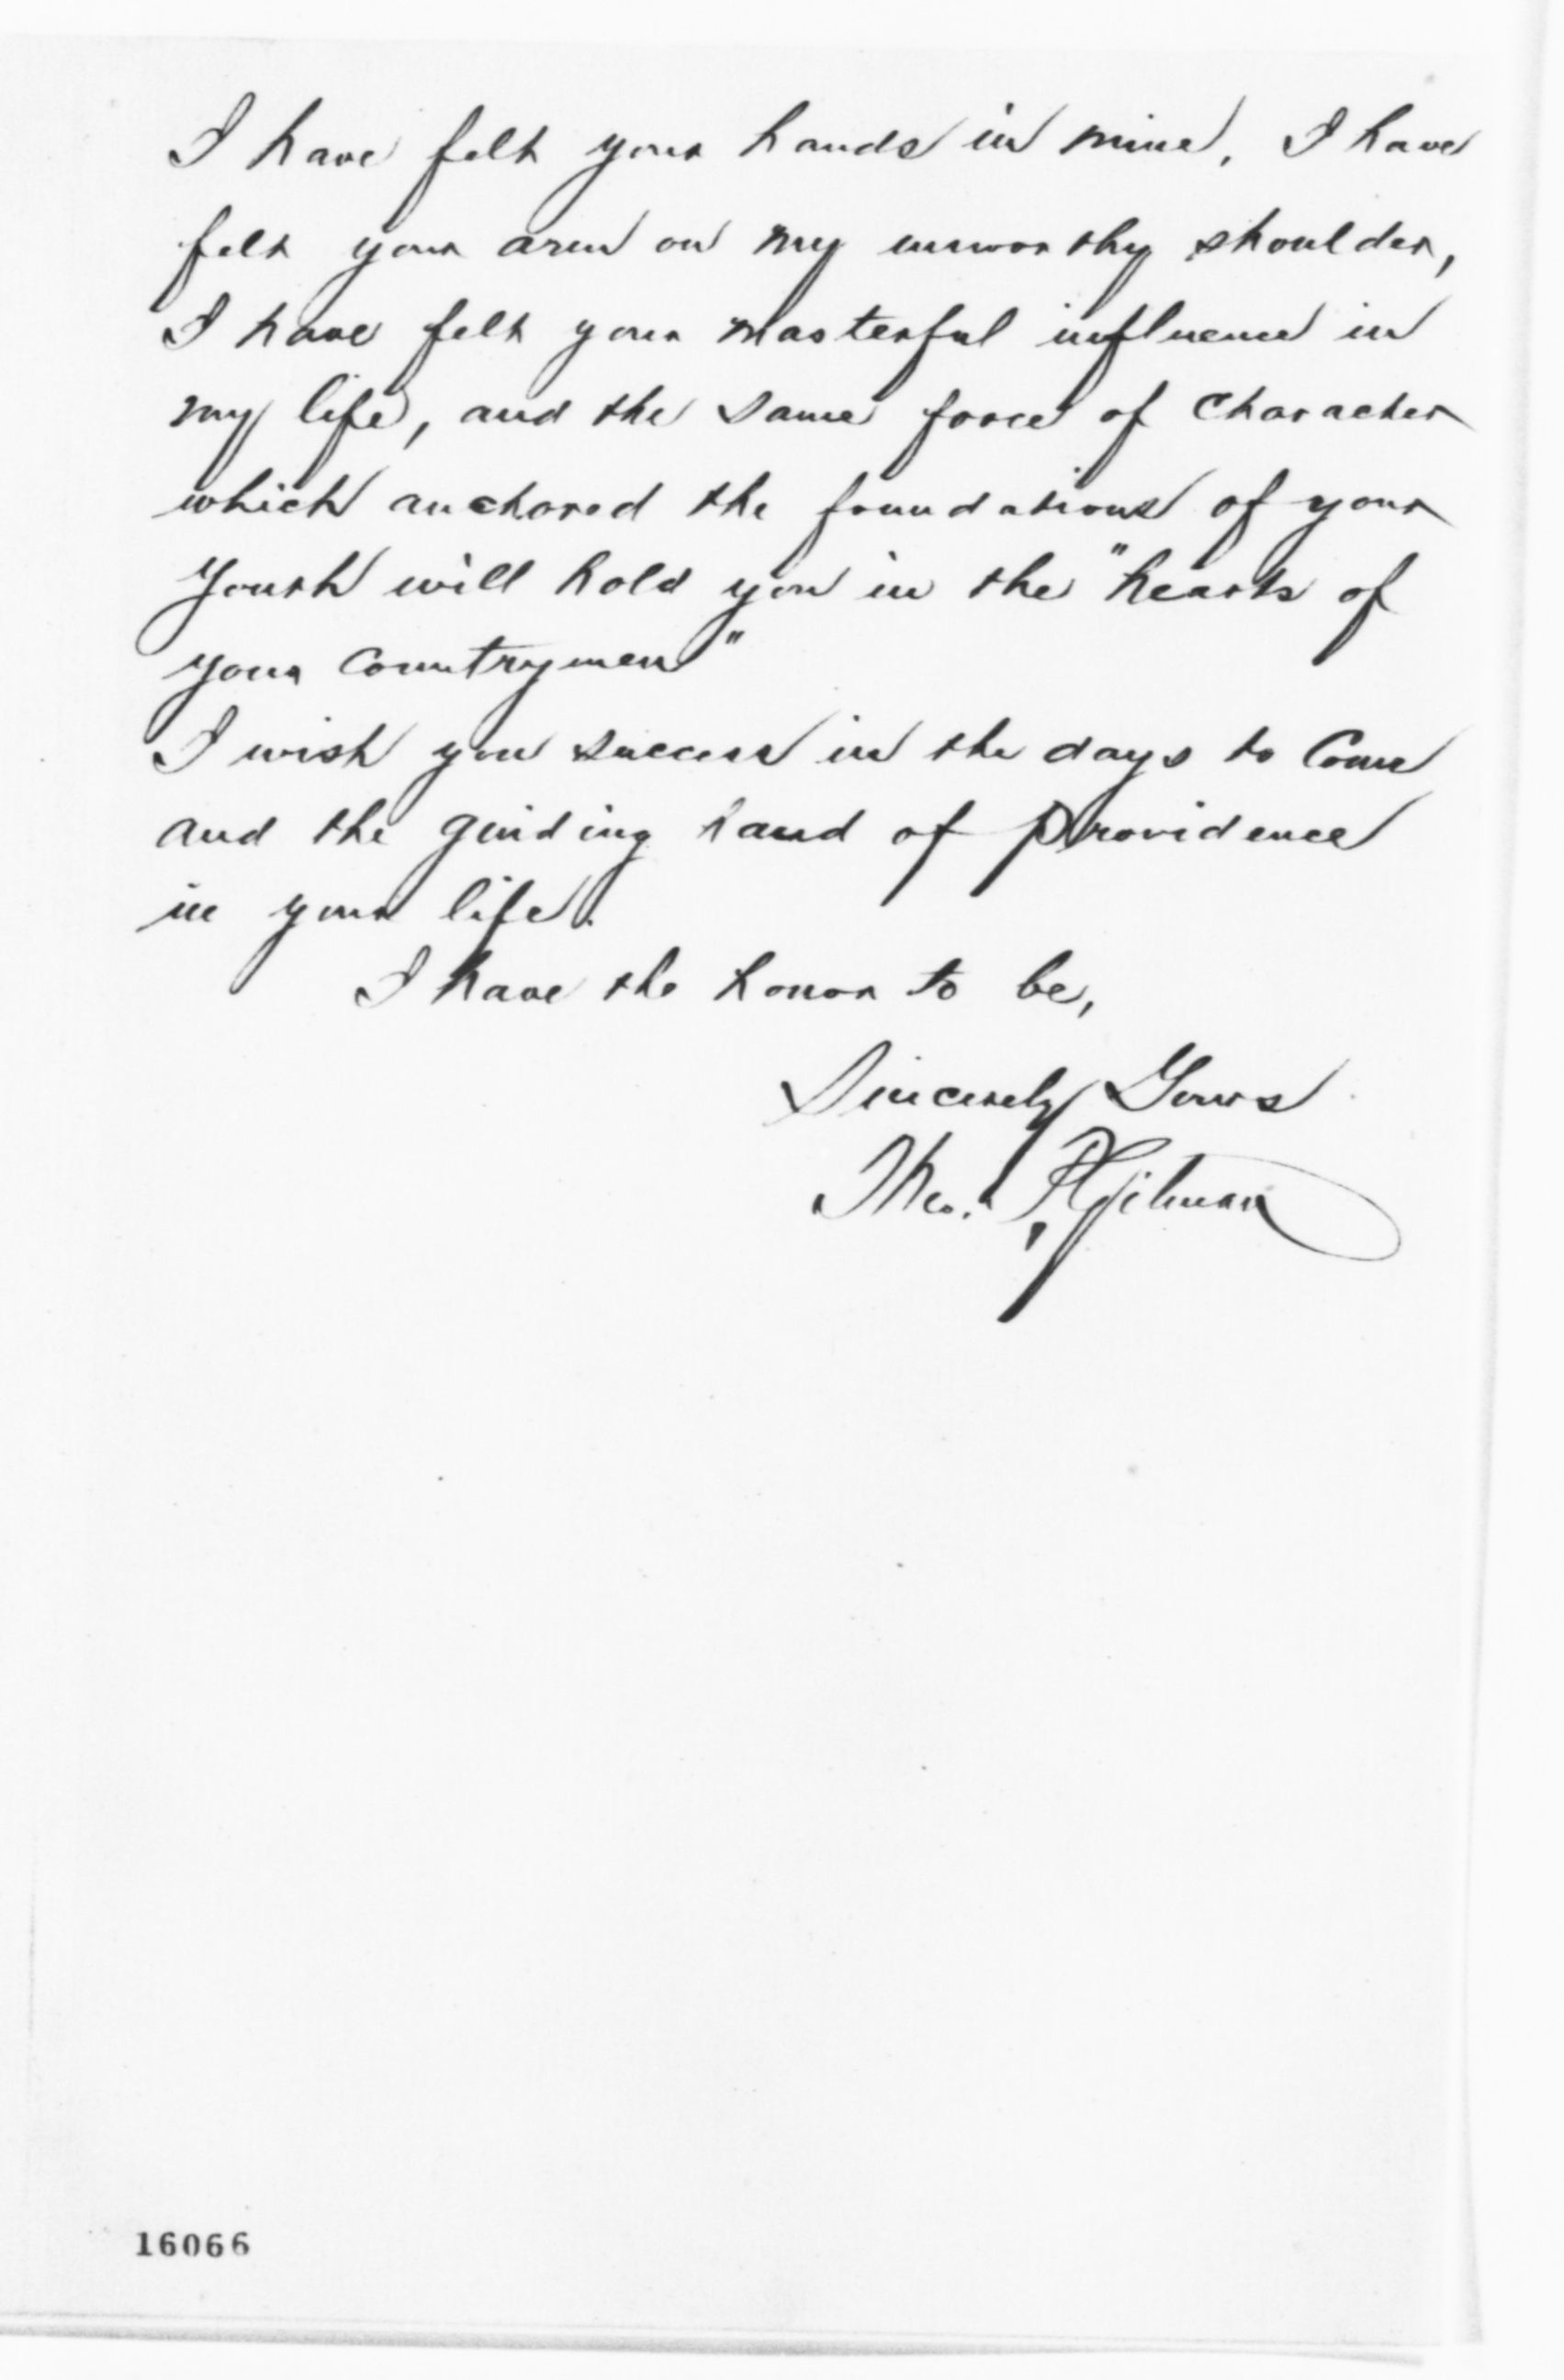 I have felt your hands in mine, I have
felt your arm on my unworthy shoulder,
I have felt your masterful influence in
my life, and the same force of Character
which anchored the foundations of your
Youth will hold you in the "hearts of
your Countrymen"
I wish you success in the days to Come
and the guiding hand of Providence
in your life.
I have the honor to be,
Sincerely Yours
Theo. Gilman
16066